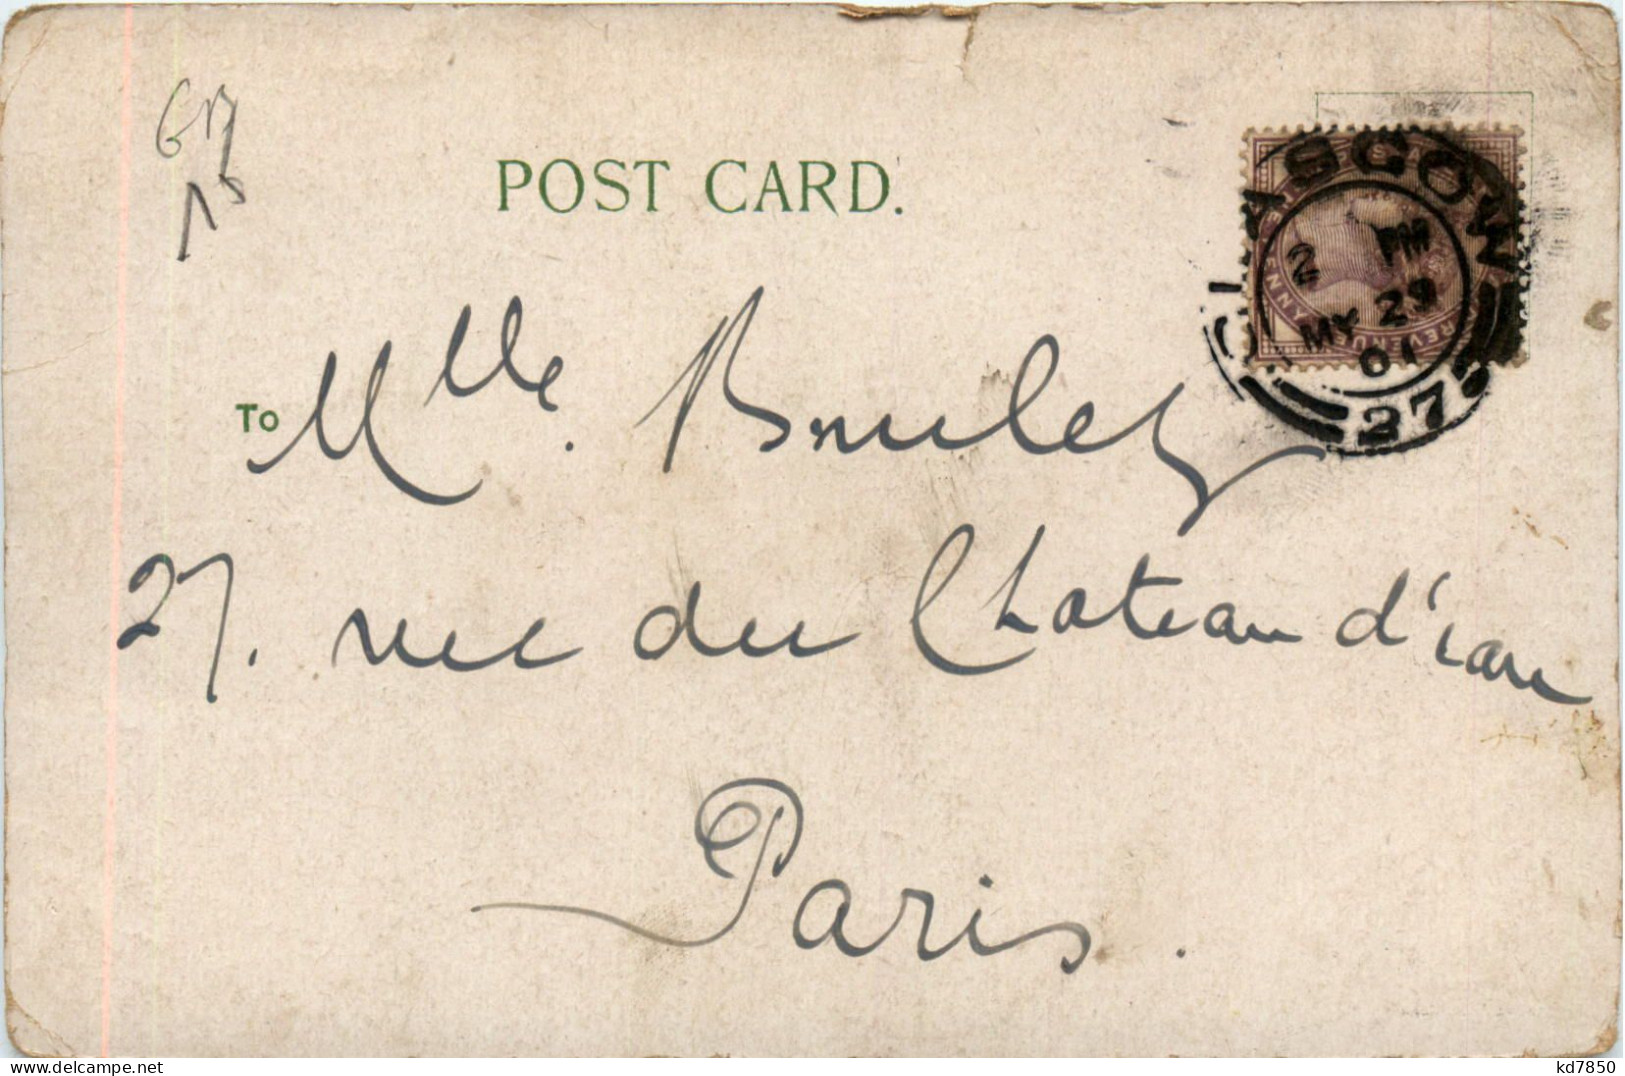 GB
15
POST CARD.
GLASGOW
2 PM
MY 29
01
27
REVENUE
To Mlle. Boulez
27. rue du Chateau d'eau
Paris.
www.delcampe.net
kd7850